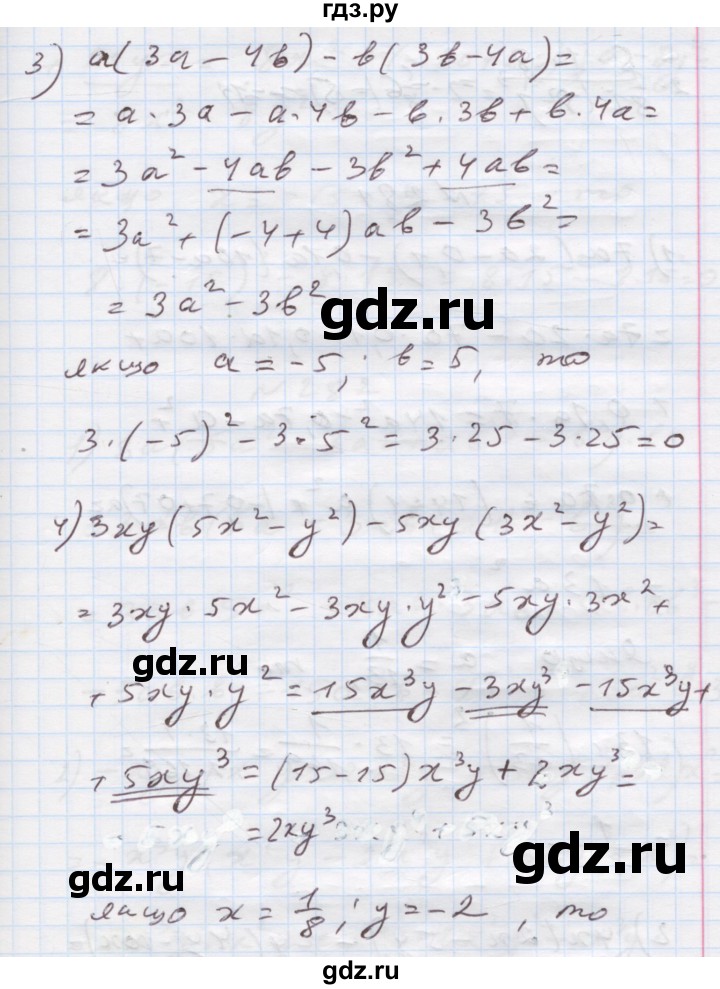 гдз.ру
3) a(3a - 4b) - b(3b - 4a) =
= a · 3a - a · 4b - b · 3b + b · 4a =
= 3a² - 4ab - 3b² + 4ab =
= 3a² + (-4 + 4)ab - 3b² =
= 3a² - 3b²
gdz.ru
якщо a = -5; b = 5, то
3 · (-5)² - 3 · 5² = 3 · 25 - 3 · 25 = 0
4) 3xy(5x² - y²) - 5xy(3x² - y²) =
= 3xy · 5x² - 3xy · y² - 5xy · 3x² +
gdz.ru
+ 5xy · y² = 15x³y - 3xy³ - 15x³y +
+ 5xy³ = (15 - 15)x³y + 2xy³ =
= 2xy³
gdz.ru
gdz.ru
якщо x = 1/8; y = -2, то
gdz.ru